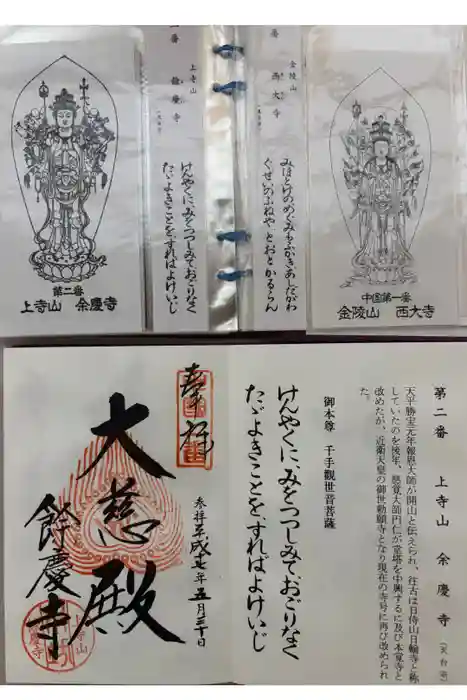 二番 上寺山 餘慶寺
けんやくに、みをつつしみておごりなく
たゞよきことを、すればよけいじ
第二番
上寺山 余慶寺
一番 金陵山 西大寺
みほとけのめぐみもふかきあしたがわ
ぐせいのふねや、とおとかるらん
中国第一番
金陵山 西大寺
第二番 上寺山 余慶寺 (天台宗)
天平勝宝元年報恩大師が開山と伝えられ、往古は日待山日輪寺と称
していたのを後年、慈覚大師円仁が堂塔を中興するに及び本覚寺と
改めたが、近衛天皇の御世勅願寺となり現在の寺号に再び改められ
た。
御本尊 千手観世音菩薩
けんやくに、みをつつしみておごりなく
たゞよきことを、すればよけいじ
奉拝
参拝 平成 年五月三十日
大慈殿
餘慶寺
上寺山
餘慶寺